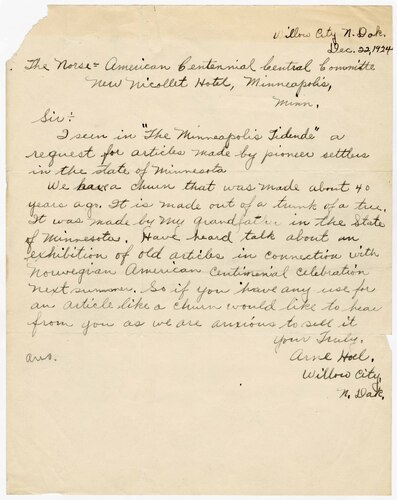 Willow City N. Dak.
Dec. 22, 1924
The Norse=American Centennial Central Committe
New Nicollet Hotel, Minneapolis,
Minn.
Sir:-
I seen in "The Minneapolis Tidende" a
request for articles made by pioneer settlers
in the state of Minnesota
We have a churn that was made about 40
years ago. It is made out of a trunk of a tree.
It was made by my grandfather in the State
of Minnesota. Have heard talk about an
exhibition of old articles in connection with
Norwegian American Centinnial Celebration
next summer. So if you have any use for
an article like a churn would like to hear
from you as we are anxious to sell it
Your Truly.
Arne Hoel.
Willow City,
N. Dak.
ans.